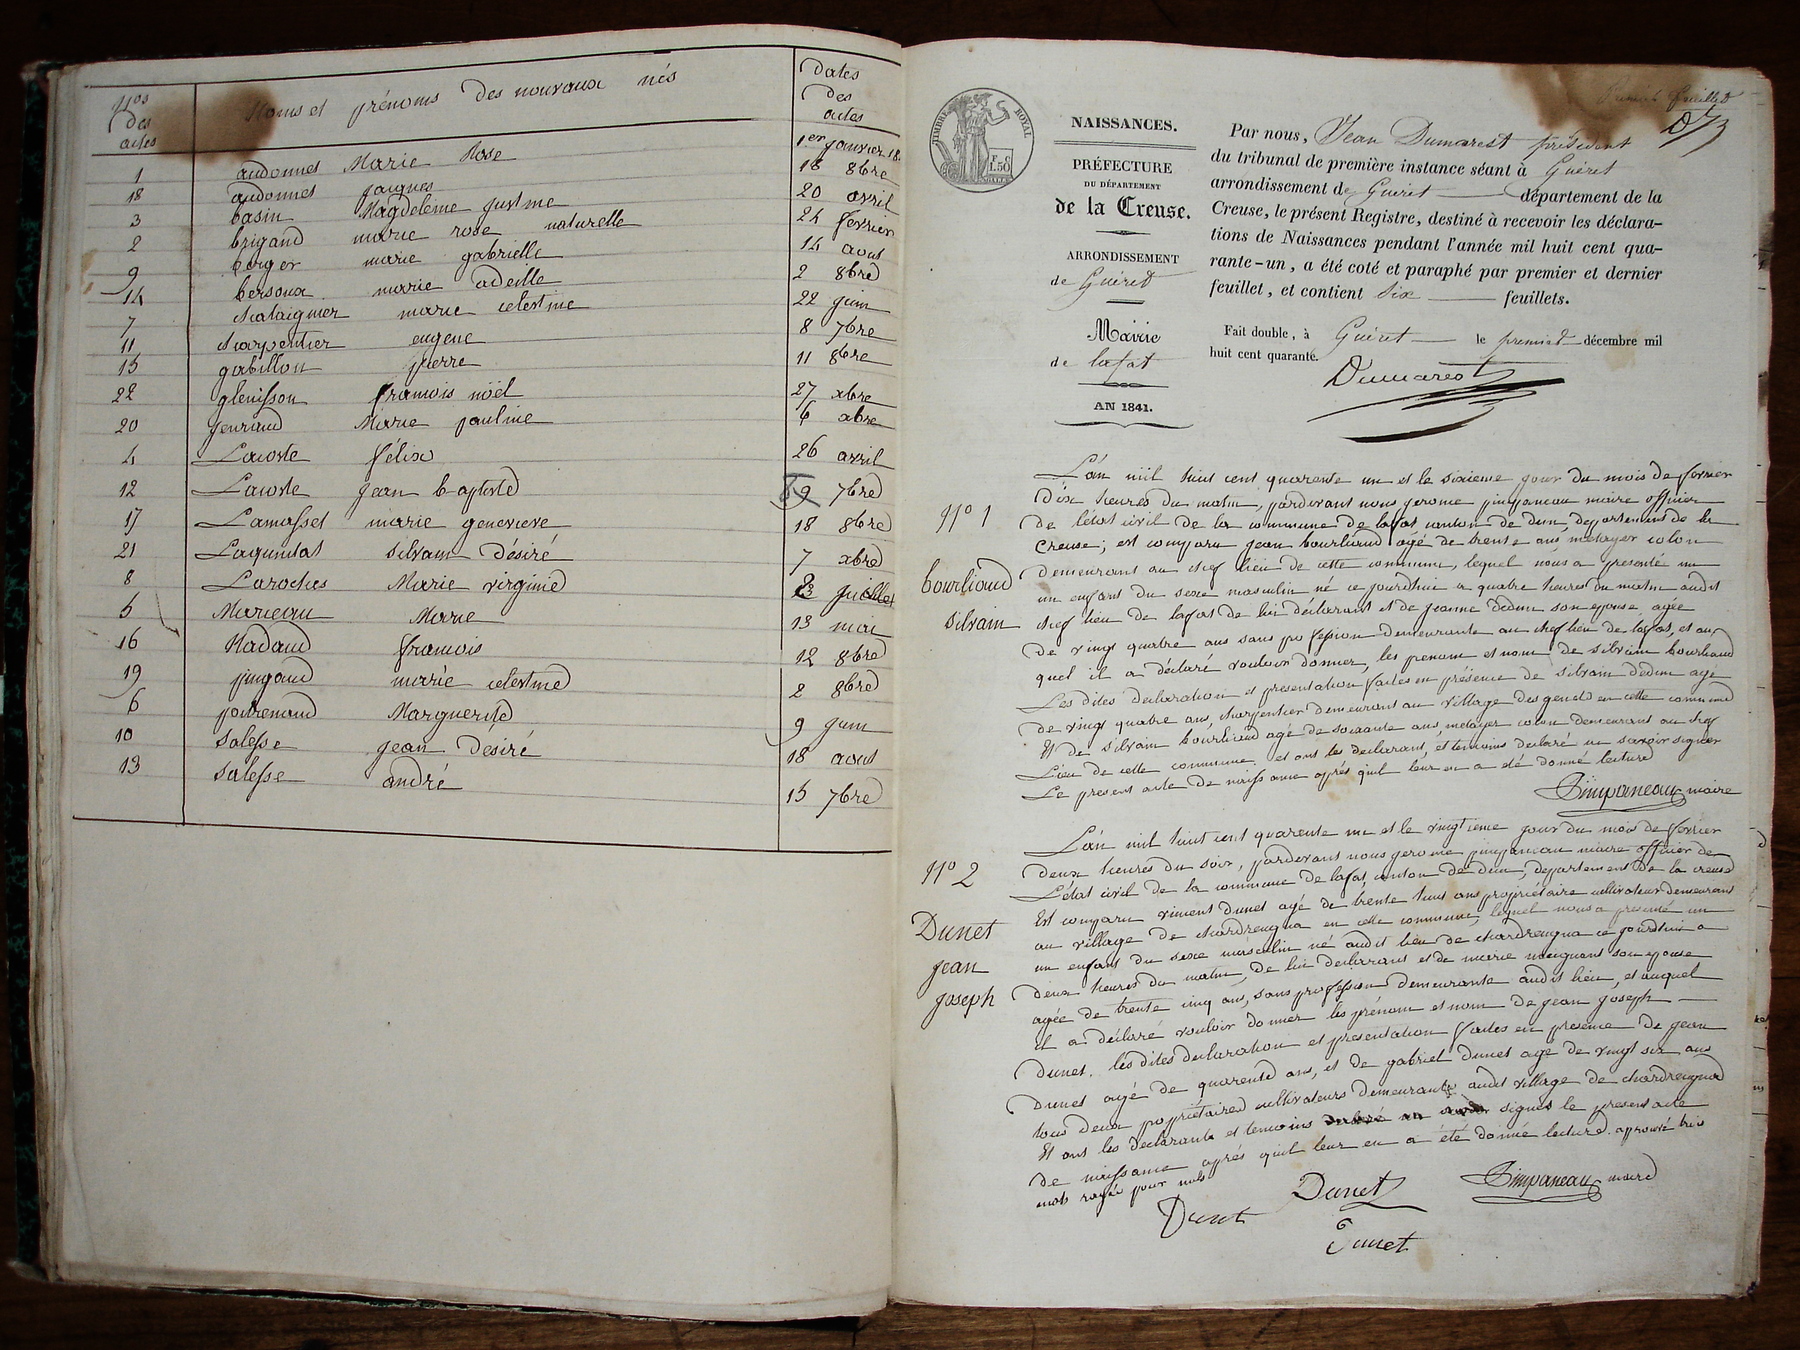 Nos des actes
Noms et prénoms des nouvaux nés
dates des actes
1 audonnet Marie Rose 1er janvier 18
18 audonnet jacques 18 8bre
3 basin Magdeleine justine 20 avril
2 brigand marie rose naturelle 24 fevrier
9 berger marie gabrielle 14 aout
14 bersoux marie adeille 2 8bre
7 chataignier marie celestine 22 juin
11 charpentier eugene 8 7bre
15 gabillon pierre 11 8bre
22 glenisson francois nöel 27 xbre
20 jenriaud Marie pauline 6 xbre
4 Lacoste félix 26 avril
12 Lacoste jean baptiste 9 7bre
17 Lamasset marie genevieve 18 8bre
21 silvain Désiré 7 xbre
8 Laroches Marie virginie juillet
5 Marieau Marie 13 mai
16 Nadaud francois 12 8bre
19 pingaud marie celestine 2 8bre
6 Marguerite 9 juin
10 Salesse jean Désiré 18 aout
13 Salesse andré 15 7bre
Premier feuillet
TIMBRE ROYAL
NAISSANCES.
PRÉFECTURE
DU DÉPARTEMENT
de la Creuse.
ARRONDISSEMENT
de Guéret
Mairie
de lafat
AN 1841.
Par nous, Jean Dumarest président
du tribunal de première instance séant à Guéret
arrondissement de Guéret département de la
Creuse, le présent Registre, destiné à recevoir les déclara-
tions de Naissances pendant l'année mil huit cent qua-
rante-un, a été coté et paraphé par premier et dernier
feuillet, et contient six feuillets.
Fait double, à Guéret le premier décembre mil
huit cent quarante.
Dumarest
No 1
bourliaud
silvain
L'an mil huit cent quarente un et le sixieme jour du mois de fevrier
Dix heures du matin, pardevant nous jerome pinpaneau maire officier
de l'état civil de la commune de lafat canton de dun, departement de la
Creuse; est comparu jean bourliaud agé de trente ans metayer colon
demeurant au chef lieu de cette commune, lequel nous a presenté un
un enfant du sexe masculin né ce jourdhui a quatre heures du matin audit
chef lieu de lafat de lui declarant et de jeanne dedun son epouse agée
de vingt quatre ans sans profession demeurante au chef lieu de lafat, et au
quel il a déclaré vouloir donner, les prenom et nom de silvain bourliaud
Les dites declaration et presentation faites en présence de silvain dedun age
de vingt quatre ans, charpentier demeurant au village des genets en cette commune
Et de silvain bourliaud agé de soixante ans metayer colon demeurant au chef
Lieu de cette commune et ont les declarant et temoins declaré un savoir signer
Le present acte de naissance après quil leur en a été donné lecture
Pimpaneau maire
No 2
Dunet
jean
joseph
L'an mil huit cent quarente un et le vingtieme jour du mois de fevrier
deux heures du soir, pardevant nous gerome pinpaneau maire officier de
L'état civil de la commune de lafat, canton de dun, departement de la creuse
Est comparu vincent dunet agé de trente huit ans propriétaire cultivateur demeurant
au village de chardreugna en cette commune, lequel nous a presenté un
un enfant du sexe masculin né audit lieu de chardreugna ce jourdhui a
deux heures du matin, de lui declarant et de marie maignant son epouse
agée de trente cinq ans, sans profession demeurante audit lieu, et auquel
il a déclaré vouloir donner les prénom et nom de jean joseph
Dunet. les dites declaration et presentation faites en presence de jean
Dunet agé de quarente ans, et de gabriel dunet agé de vingt six ans
tous deux propriétaires cultivateurs demeurants audit village de chardreugna
Et ont les declarants et temoins signés le present acte
De naissance après quil leur en a été donné lecture. aprouvé trois
mots rayés pour nuls
Pimpaneau maire
Dunet
Dunet
Dunet